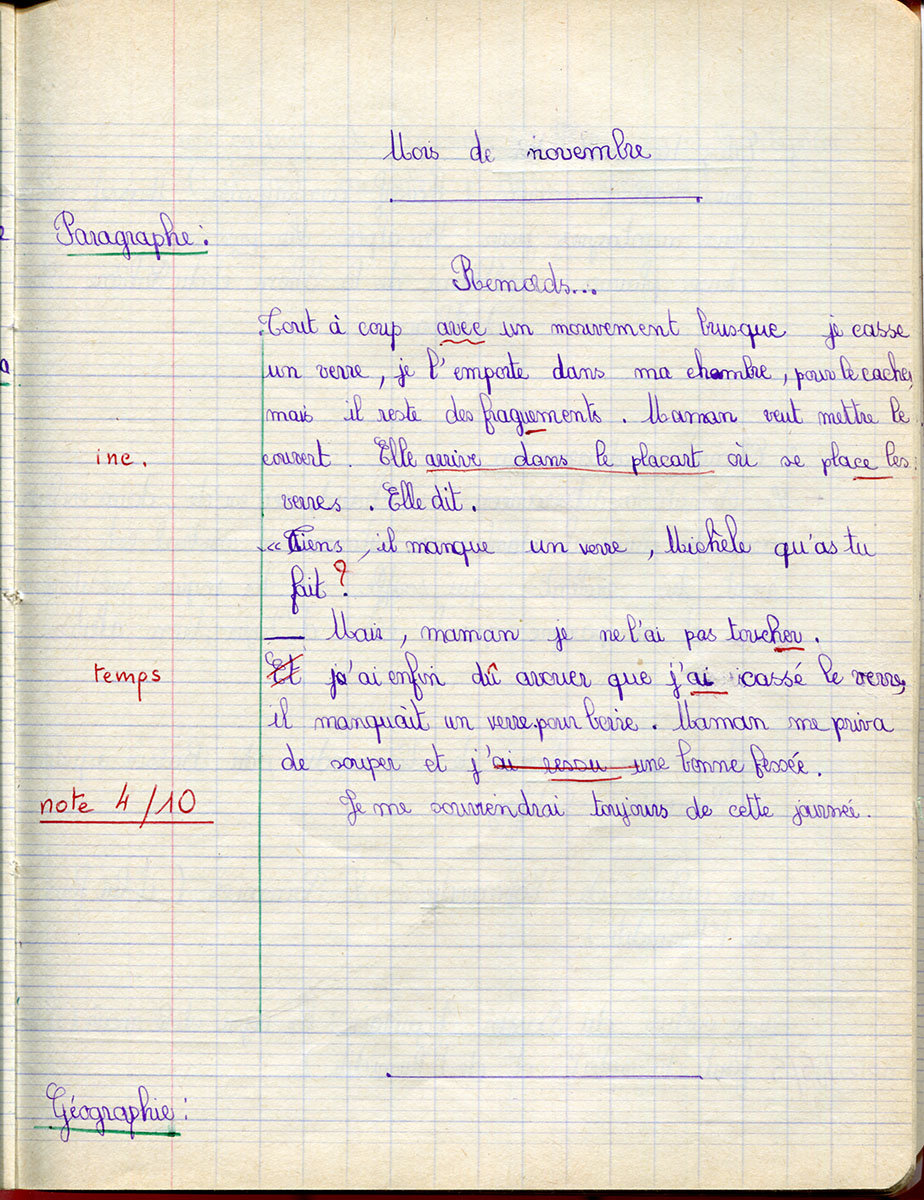 Mois de novembre
Paragraphe :
Remords...
Tout à coup avec un mouvement brusque je casse
un verre, je l'emporte dans ma chambre, pour le cacher
mais il reste des fraguements. Maman veut mettre le
inc. couvert. Elle arrive dans le placart où se place les
verres. Elle dit.
« Tiens, il manque un verre, Michèle qu'as tu
fait ?
— Mais, maman je ne l'ai pas toucher.
temps Et j'ai enfin dû avouer que j'ai cassé le verre,
il manquait un verre pour boire. Maman me priva
de souper et j'ai ressu une bonne fessée.
note 4/10 Je me souviendrai toujours de cette journée.
Géographie :